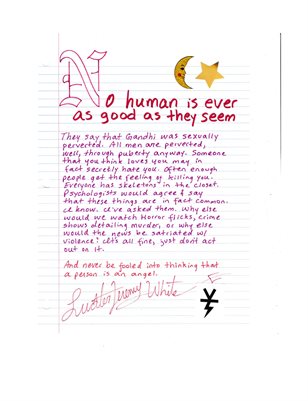 No human is ever
as good as they seem
They say that Gandhi was sexually
perverted. All men are perverted,
well, through puberty anyway. Someone
that you think loves you may in
fact secretly hate you. Often enough
people get the feeling of killing you.
Everyone has skeletons" in the closet.
Psychologists would agree & say
that these things are in fact common.
I know. I've asked them. Why else
would we watch Horror flicks, crime
shows detailing murder, or why else
would the news be satriated w/
violence? It's all fine, just don't act
out on it.
And never be fooled into thinking that
a person is an angel.
Jeremy White